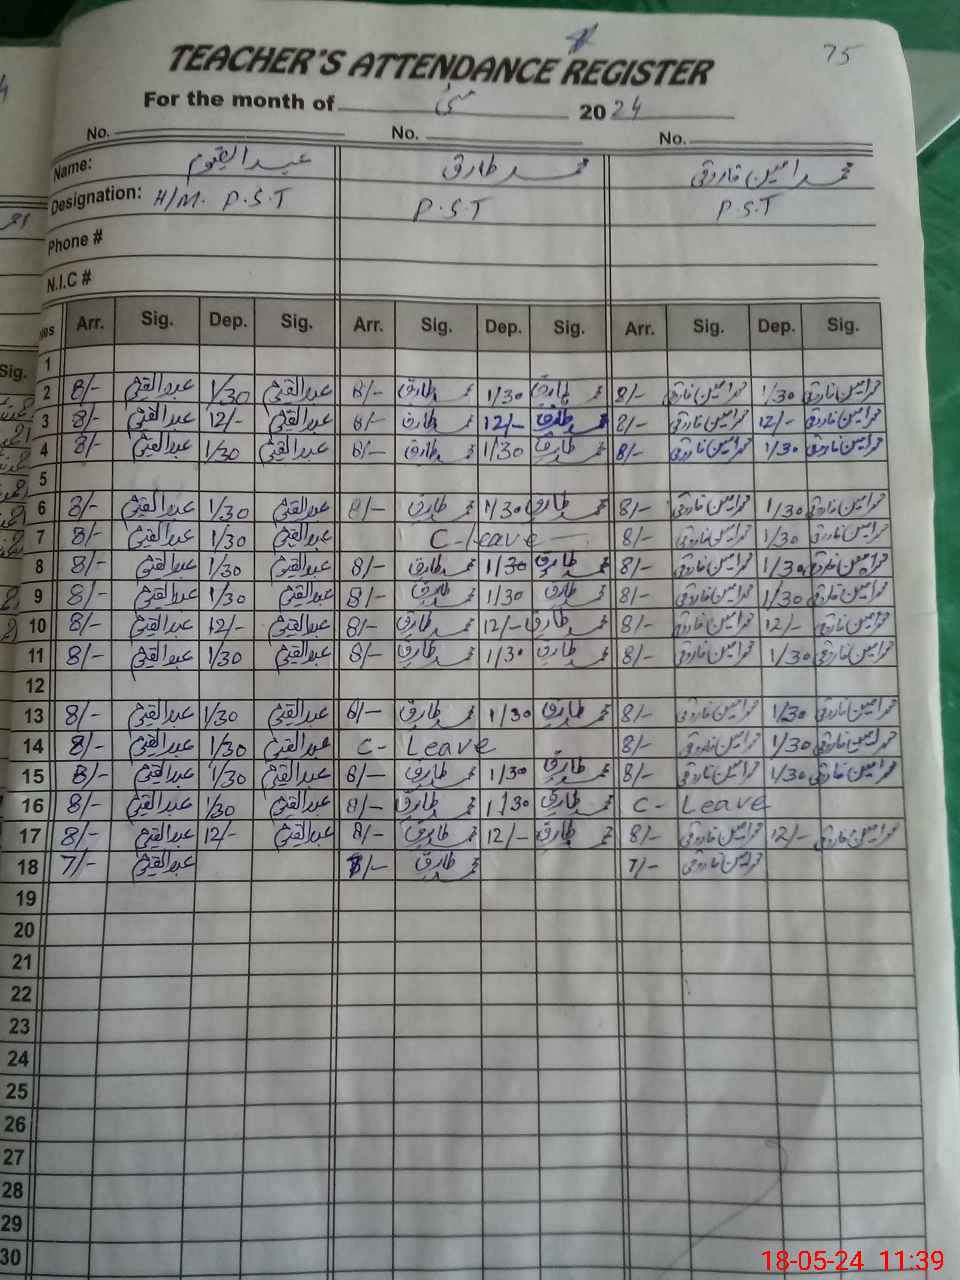 75
TEACHER'S ATTENDANCE REGISTER
For the month of مئی 2024
No. No. No.
Name: عبدالقیوم محمد طارق محمد امین فاروقی
Designation: H/M. P.S.T P.S.T P.S.T
Phone #
N.I.C #
Arr. Sig. Dep. Sig. Arr. Sig. Dep. Sig. Arr. Sig. Dep. Sig.
1
2 8/- عبدالقیوم 1/30 عبدالقیوم 8/- محمد طارق 1/30 محمد طارق 8/- محمد امین فاروقی 1/30 محمد امین فاروقی
3 8/- عبدالقیوم 12/- عبدالقیوم 8/- محمد طارق 12/- محمد طارق 8/- محمد امین فاروقی 12/- محمد امین فاروقی
4 8/- عبدالقیوم 1/30 عبدالقیوم 8/- محمد طارق 1/30 محمد طارق 8/- محمد امین فاروقی 1/30 محمد امین فاروقی
5
6 8/- عبدالقیوم 1/30 عبدالقیوم 8/- محمد طارق 1/30 محمد طارق 8/- محمد امین فاروقی 1/30 محمد امین فاروقی
7 8/- عبدالقیوم 1/30 عبدالقیوم C-leave 8/- محمد امین فاروقی 1/30 محمد امین فاروقی
8 8/- عبدالقیوم 1/30 عبدالقیوم 8/- محمد طارق 1/30 محمد طارق 8/- محمد امین فاروقی 1/30 محمد امین فاروقی
9 8/- عبدالقیوم 1/30 عبدالقیوم 8/- محمد طارق 1/30 محمد طارق 8/- محمد امین فاروقی 1/30 محمد امین فاروقی
10 8/- عبدالقیوم 12/- عبدالقیوم 8/- محمد طارق 12/- محمد طارق 8/- محمد امین فاروقی 12/- محمد امین فاروقی
11 8/- عبدالقیوم 1/30 عبدالقیوم 8/- محمد طارق 1/30 محمد طارق 8/- محمد امین فاروقی 1/30 محمد امین فاروقی
12
13 8/- عبدالقیوم 1/30 عبدالقیوم 8/- محمد طارق 1/30 محمد طارق 8/- محمد امین فاروقی 1/30 محمد امین فاروقی
14 8/- عبدالقیوم 1/30 عبدالقیوم C- Leave 8/- محمد امین فاروقی 1/30 محمد امین فاروقی
15 8/- عبدالقیوم 1/30 عبدالقیوم 8/- محمد طارق 1/30 محمد طارق 8/- محمد امین فاروقی 1/30 محمد امین فاروقی
16 8/- عبدالقیوم 1/30 عبدالقیوم 8/- محمد طارق 1/30 محمد طارق C- Leave
17 8/- عبدالقیوم 12/- عبدالقیوم 8/- محمد طارق 12/- محمد طارق 8/- محمد امین فاروقی 12/- محمد امین فاروقی
18 7/- عبدالقیوم /- محمد طارق 7/- محمد امین فاروقی
19
20
21
22
23
24
25
26
27
28
29
30
18-05-24 11:39